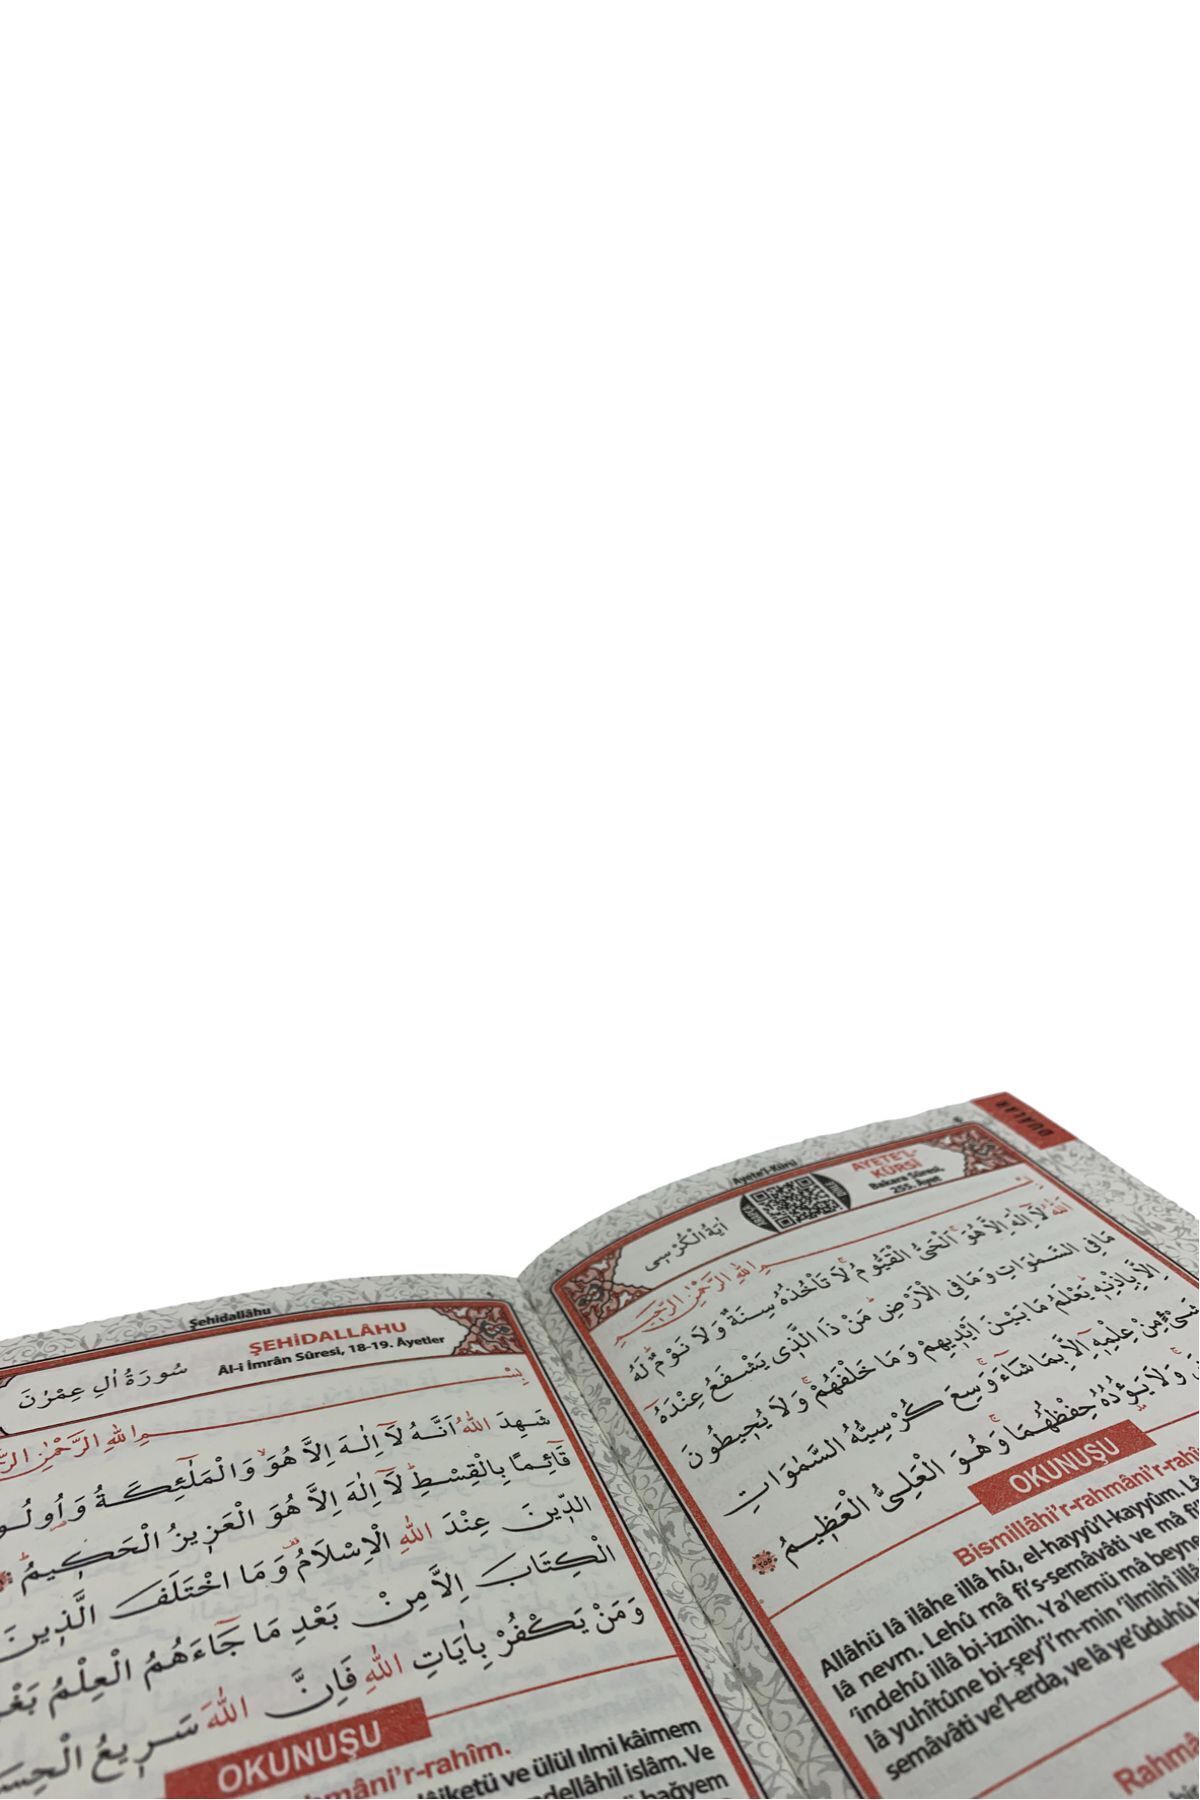 Şehidallâhu
ŞEHİDALLÂHU
Âl-i İmrân Sûresi, 18-19. Âyetler
سُورَةُ اٰلِ عِمْرٰنَ
بِسْــــمِ اللّٰهِ الرَّحْمٰنِ
شَهِدَ اللّٰهُ اَنَّهُ لَٓا اِلٰهَ اِلَّا هُوَۙ وَالْمَلٰٓئِكَةُ وَاُو۬لُوا
قَٓائِمًا بِالْقِسْطِۜ لَٓا اِلٰهَ اِلَّا هُوَ الْعَزِيزُ الْحَكِيمُۜ
الدّ۪ينَ عِنْدَ اللّٰهِ الْاِسْلَامُ۠ وَمَا اخْتَلَفَ الَّذ۪ينَ
الْكِتَابَ اِلَّا مِنْ بَعْدِ مَا جَٓاءَهُمُ الْعِلْمُ
وَمَنْ يَكْفُرْ بِاٰيَاتِ اللّٰهِ فَاِنَّ اللّٰهَ سَر۪يعُ
OKUNUŞU
mâni'r-rahîm.
lâiketü ve ülül ılmi kâimem
ndellâhil islâm. Ve
bağyem
DUALAR
6
Ayete'l-Kürsî
AYETE'L-
KÜRSÎ
Bakara Sûresi,
255. Âyet
اٰيَةُ الْكُرْسِي
بِسْــــمِ اللّٰهِ الرَّحْمٰنِ الرَّحِيمِ
اَللّٰهُ لَٓا اِلٰهَ اِلَّا هُوَۚ اَلْحَيُّ الْقَيُّومُۚ لَا تَأْخُذُهُ سِنَةٌ وَلَا نَوْمٌۜ لَهُ
مَا فِي السَّمٰوَاتِ وَمَا فِي الْاَرْضِۜ مَنْ ذَا الَّذ۪ي يَشْفَعُ عِنْدَهُٓ
اِلَّا بِاِذْنِه۪ۜ يَعْلَمُ مَا بَيْنَ اَيْد۪يهِمْ وَمَا خَلْفَهُمْۚ وَلَا يُح۪يطُونَ
مِنْ عِلْمِه۪ٓ اِلَّا بِمَا شَٓاءَۚ وَسِعَ كُرْسِيُّهُ السَّمٰوَاتِ
وَلَا يَؤُ۫دُهُ حِفْظُهُمَاۚ وَهُوَ الْعَلِيُّ الْعَظ۪يمُ ﴿٢٥٥﴾
OKUNUŞU
Bismillâhi'r-rahmâni'r-rahî
Allâhü lâ ilâhe illâ hû, el-hayyü'l-kayyûm. Lâ
lâ nevm. Lehû mâ fi's-semâvâti ve mâ fi
'indehû illâ bi-iznih. Ya'lemü mâ beyne
lâ yuhîtûne bi-şey'i'm-min 'ilmihî illâ
semâvâti ve'l-erda, ve lâ ye'ûduhû
Rahmâ